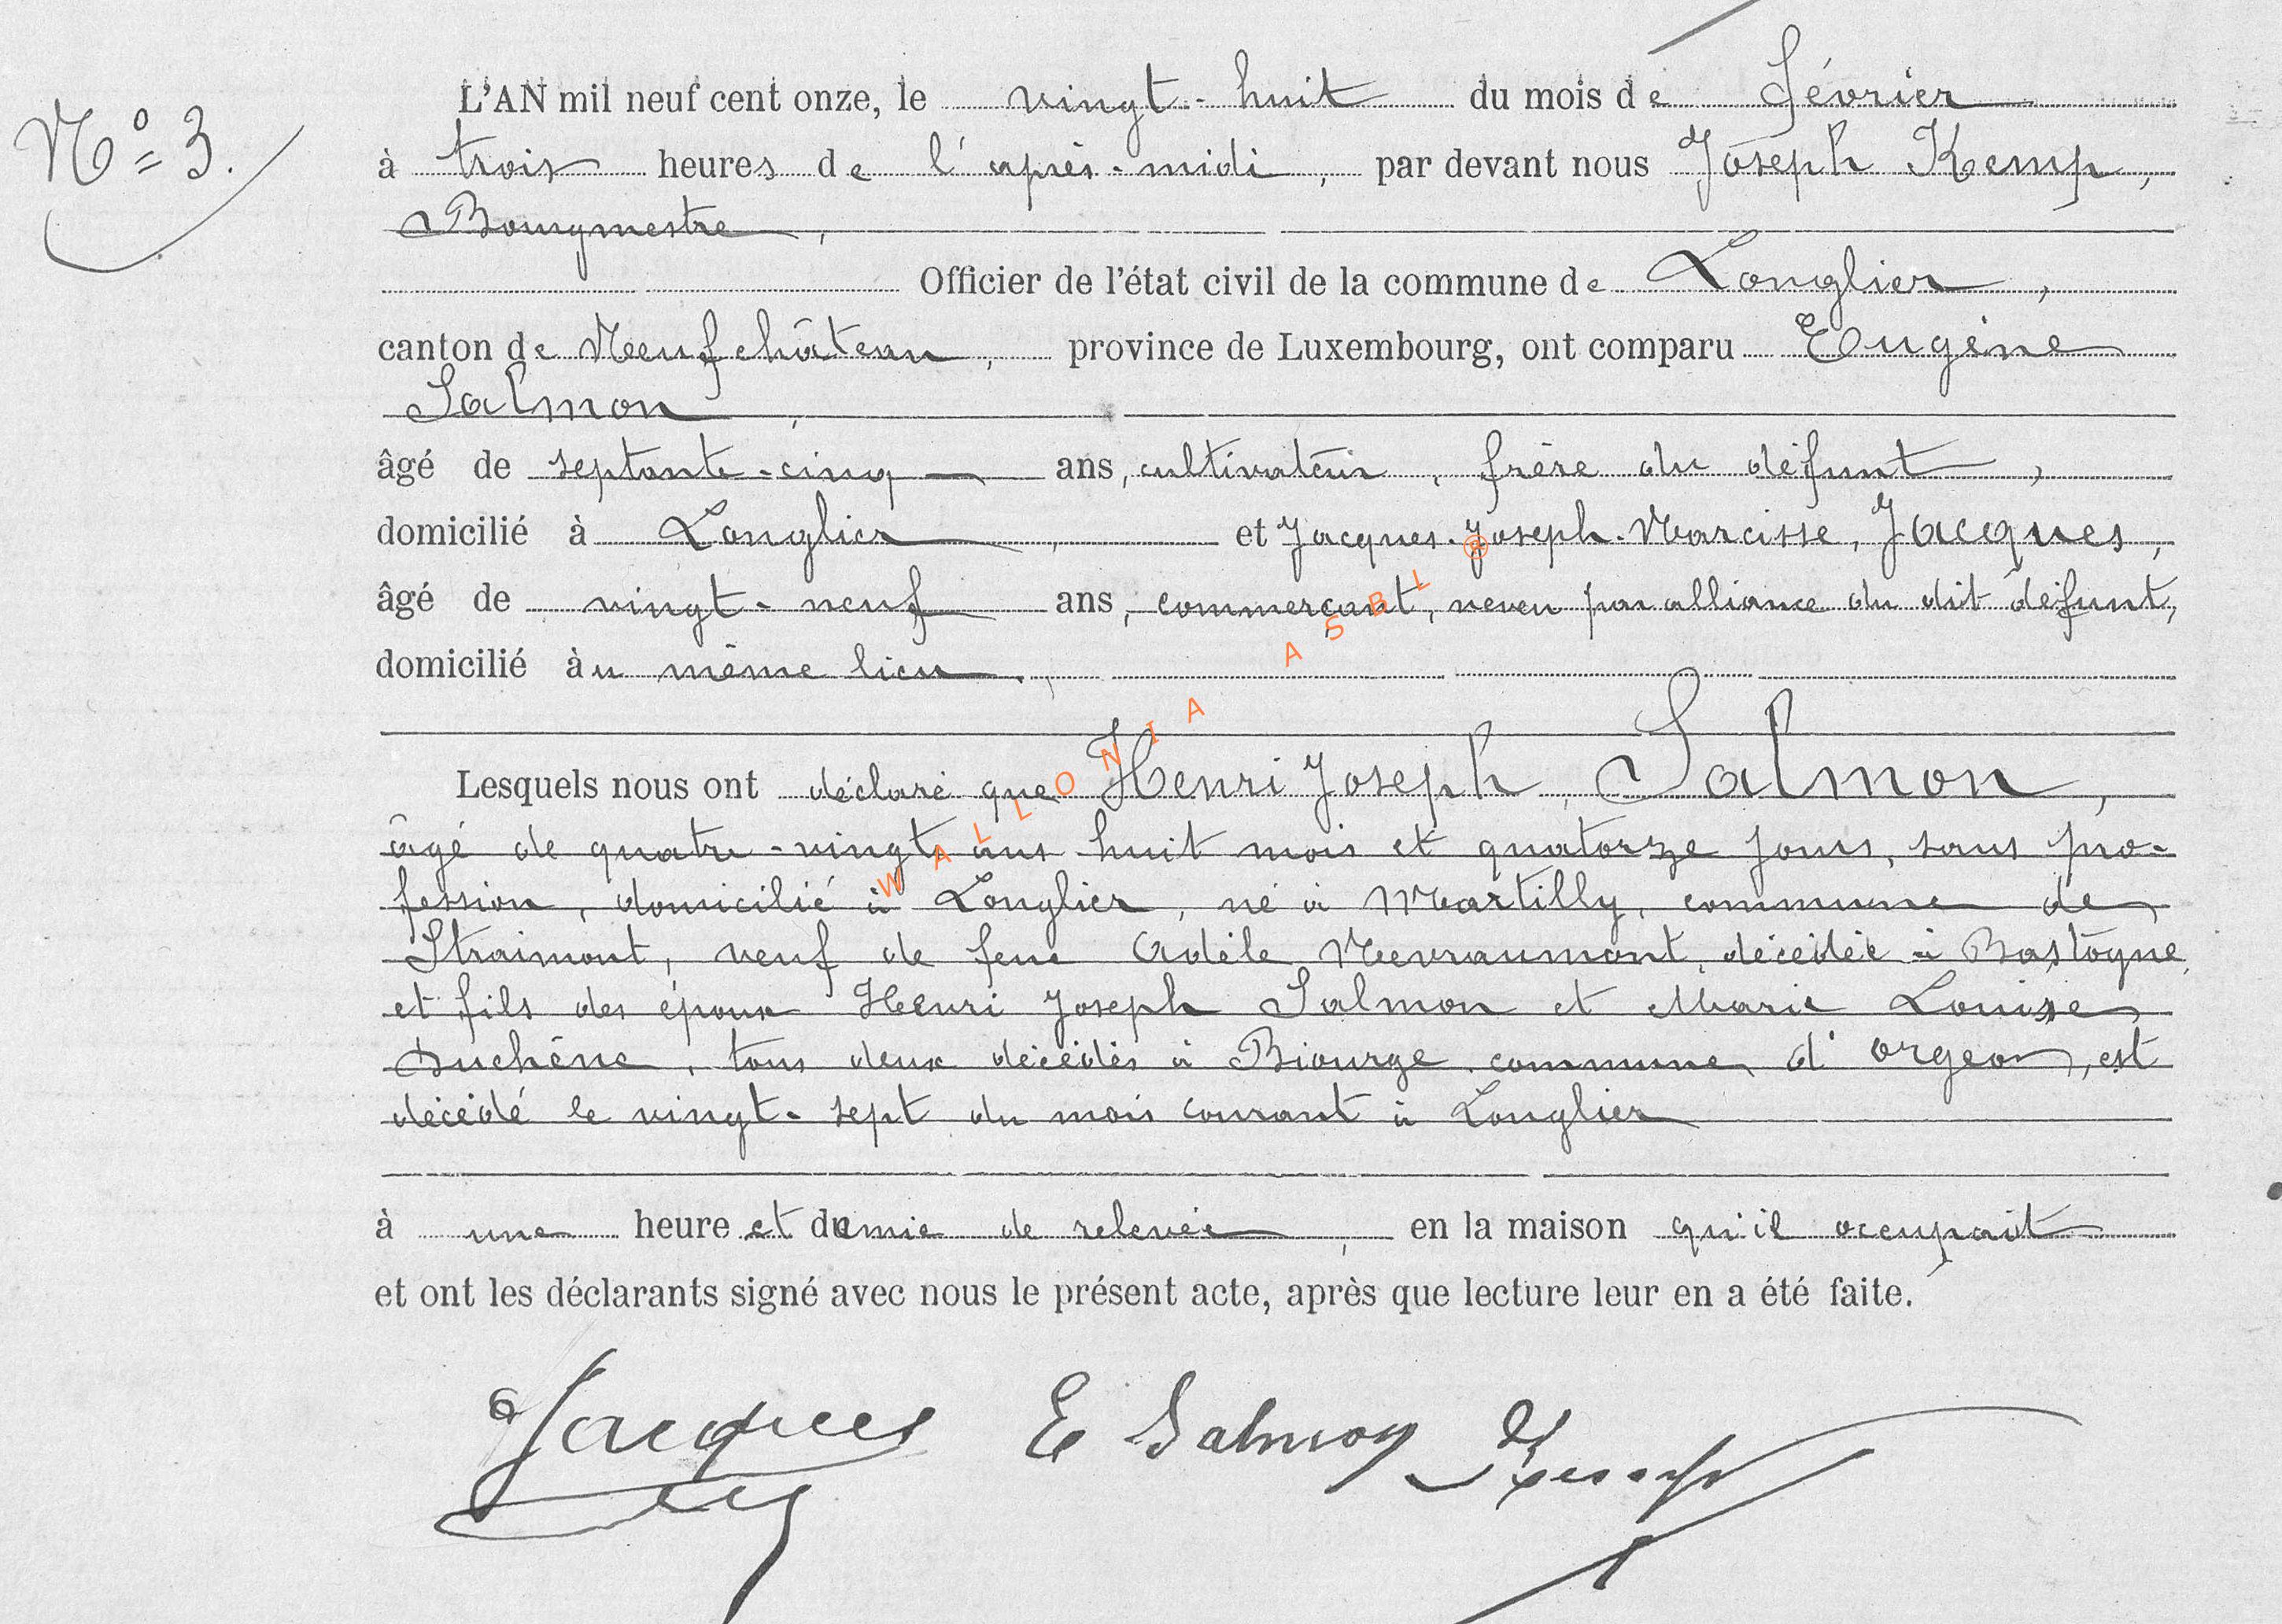 L'AN mil neuf cent onze, le vingt-huit du mois de février
N° 3.
à trois heures de l'après-midi, par devant nous Joseph Kemp,
Bourgmestre,
Officier de l'état civil de la commune de Longlier,
canton de Neufchâteau, province de Luxembourg, ont comparu Eugène
Salmon,
âgé de septante-cinq ans, cultivateur, frère du défunt,
domicilié à Longlier, et Jacques-Joseph-Narcisse, Jacques,
âgé de vingt-neuf ans, commerçant, neveu par alliance du dit défunt,
domicilié au même lieu.,
Lesquels nous ont déclaré que Henri Joseph, Salmon,
âgé de quatre-vingts ans huit mois et quatorze jours, sans pro-
fession, domicilié à Longlier, né à Martilly, commune de
Straimont, veuf de feue Adèle Nevraumont, décédée à Bastogne,
et fils des époux Henri Joseph Salmon et Marie Louise
Duchêne, tous deux décédés à Biourge, commune d'Orgeo, est
décédé le vingt-sept du mois courant à Longlier
à une heure et demie de relevée, en la maison qu'il occupait
et ont les déclarants signé avec nous le présent acte, après que lecture leur en a été faite.
Jacques E Salmon Kemp
WALLONIA ASBL ®